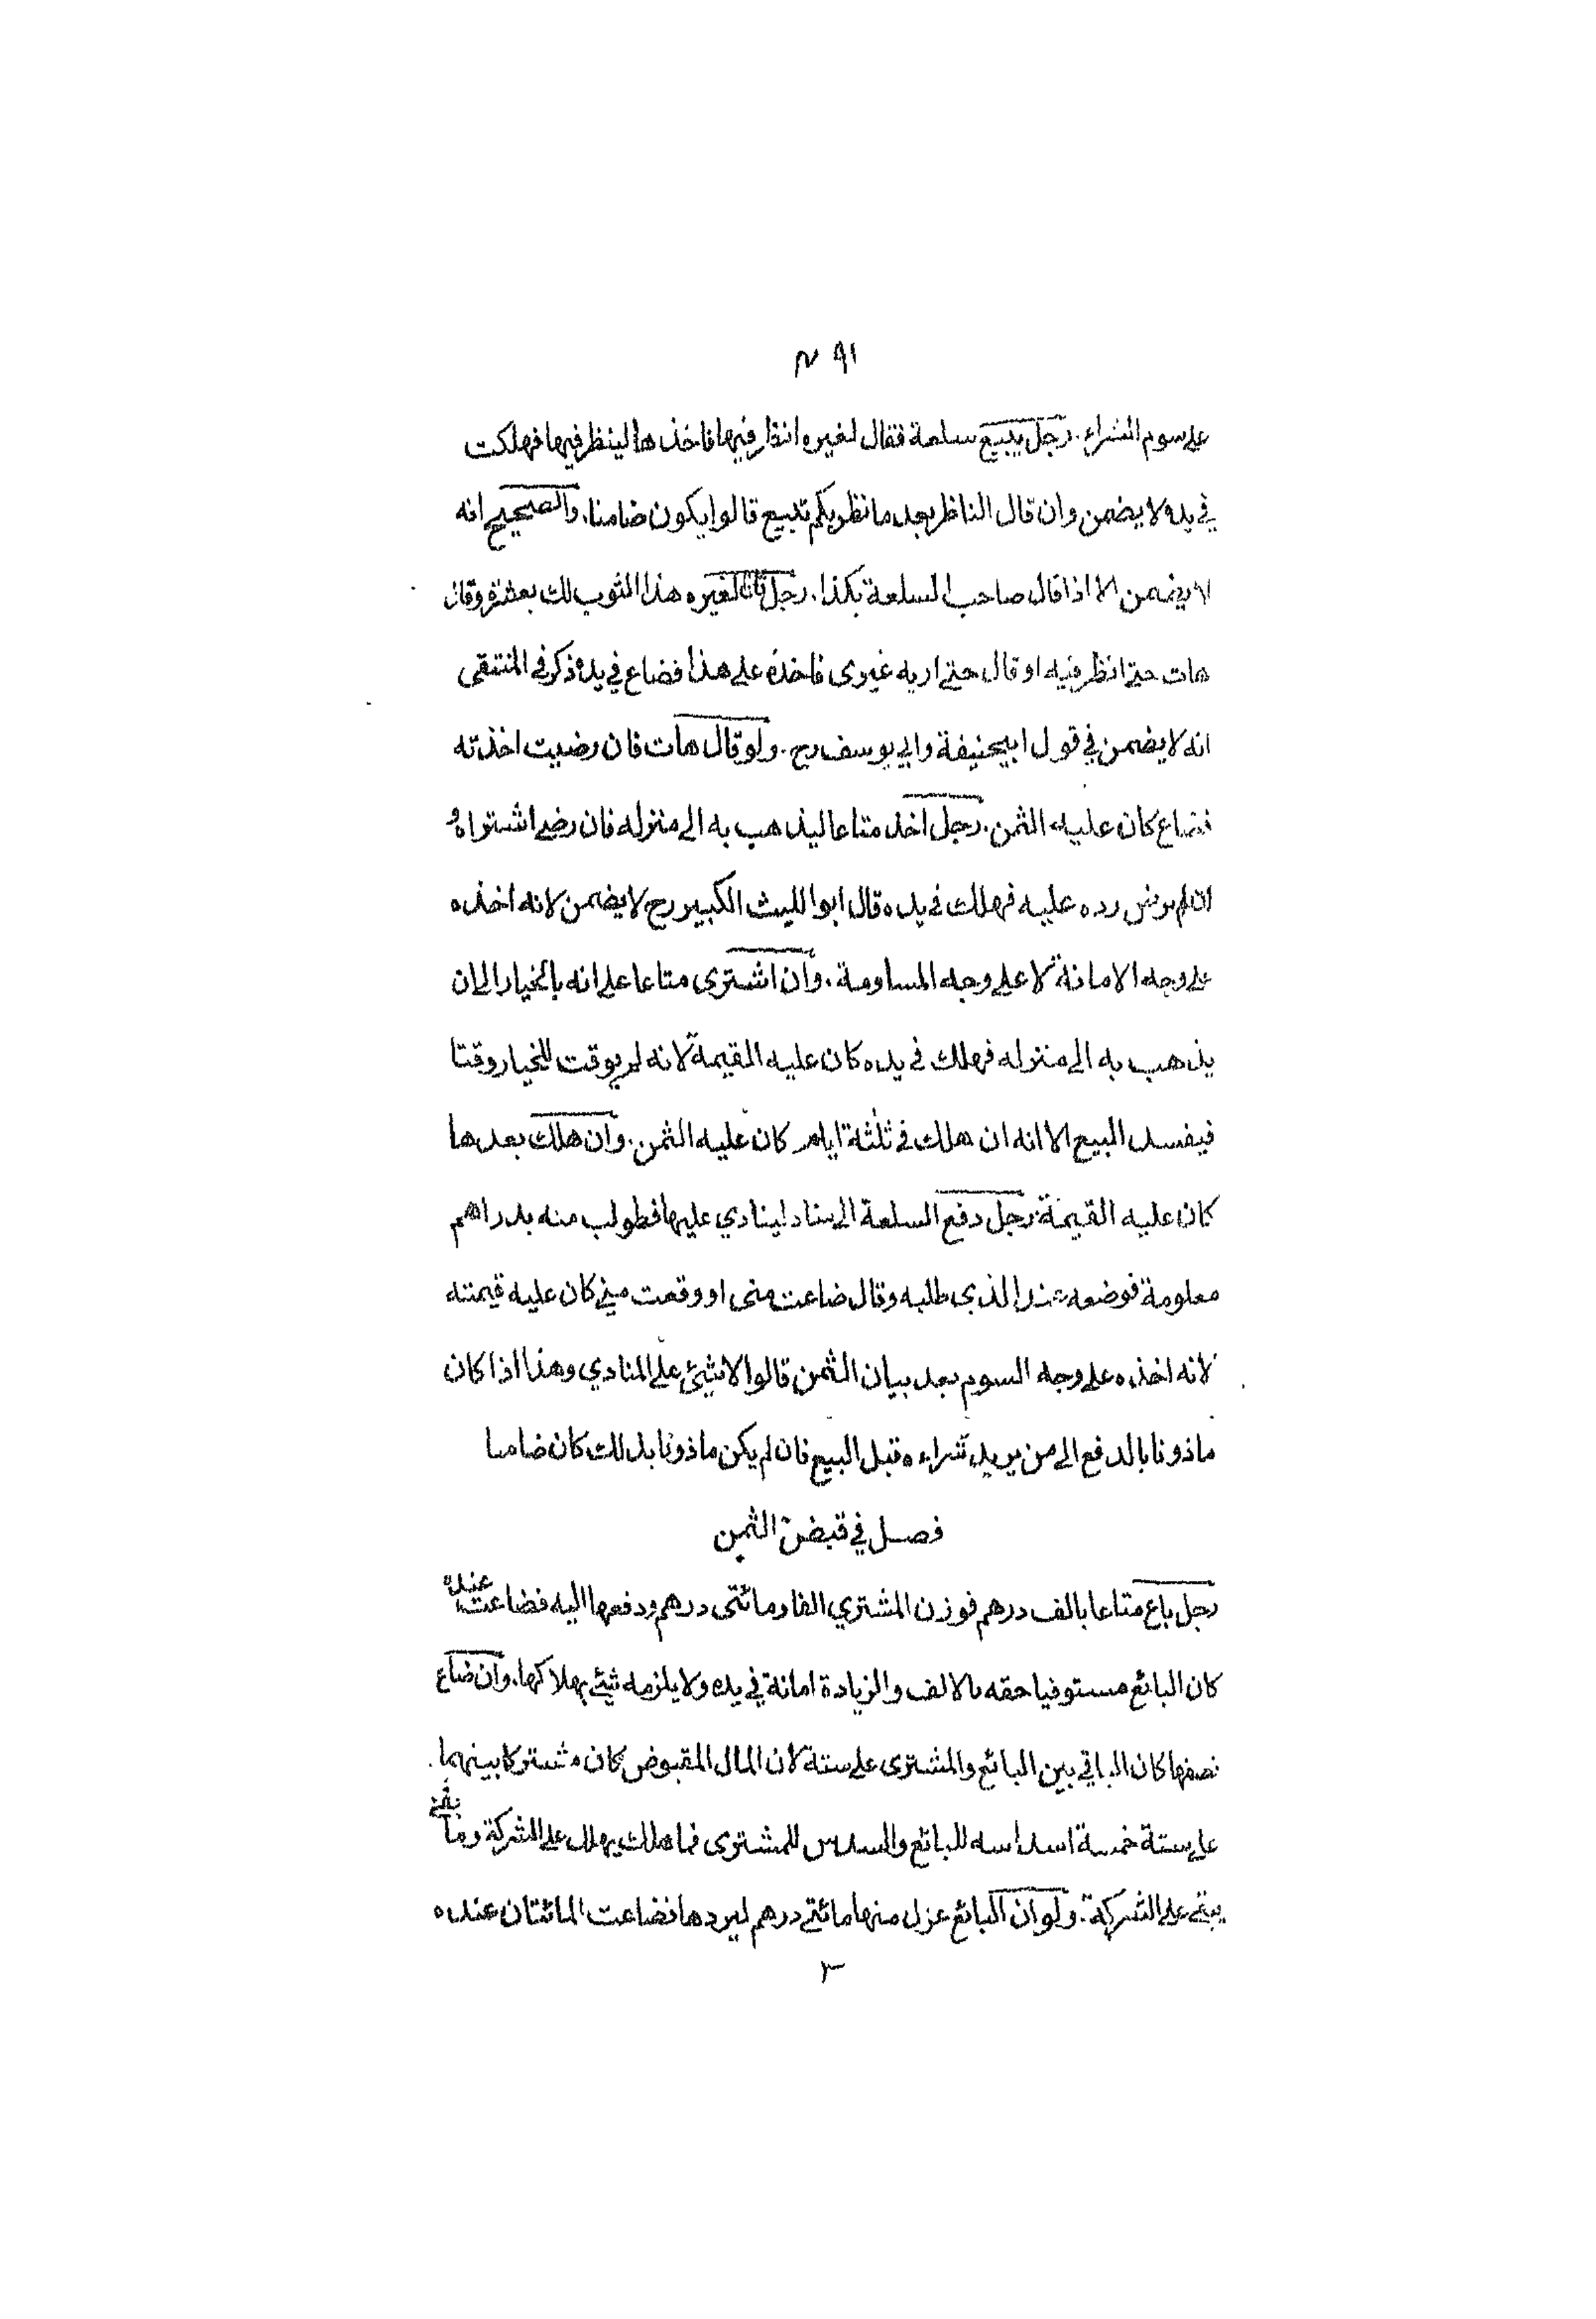 ٩١
على سوم الشراء. رجل يبيع سلعة فقال لغيره انظر فيها فاخذها لينظر فيها فهلكت
في يده لا يضمن وان قال الناظر بعد ما نظر بكم تبيع قالوا يكون ضامنا. والصحيح انه
لا يضمن الا اذا قال صاحب السلعة بكذا. رجل قال لغيره هذا الثوب لك بعشرة وقال
هات حتى انظر فيه او قال حتى اريه غيرى فاخذه على هذا فضاع في يده ذكر في المنتقى
انه لا يضمن في قول ابيحنيفة وابي يوسف رح. ولو قال هات فان رضيت اخذته
فضاع كان عليه الثمن. رجل اخذ متاعا ليذهب به الى منزله فان رضي اشتراه و
ان لم يرض رده عليه فهلك في يده قال ابوا الليث الكبير رح لا يضمن لانه اخذه
على وجه الامانة لا على وجه المساومة. وان اشترى متاعا على انه بالخيار الى ان
يذهب به الى منزله فهلك في يده كان عليه القيمة لانه لم يوقت للخيار وقتا
فيفسد البيع الا انه ان هلك في ثلثة ايام كان عليه الثمن. وان هلك بعدها
كان عليه القيمة. رجل دفع السلعة الى مناد لينادي عليها فطولب منه بدراهم
معلومة فوضعه عند الذى طلبه وقال ضاعت منى او وقعت مني كان عليه قيمته
لانه اخذه على وجه السوم بعد بيان الثمن قالوا لا شيئ على المنادي وهذا اذا كان
ماذونا بالدفع الى من يريد شراءه قبل البيع فان لم يكن ماذونا بذلك كان ضامنا
فصل في قبض الثمن
رجل باع متاعا بالف درهم فوزن المشتري الفا ومائتى درهم ودفعها اليه فضاعت عنده
كان البائع مستوفيا حقه بالالف والزيادة امانة في يده ولا يلزمه شيئ بهلاكها. وان ضاع
نصفها كان الباقي بين البائع والمشترى على ستة لان المال المقبوض كان مشتركا بينهما.
على ستة خمسة اسداسه للبائع والسدس للمشترى فما هلك يهلك على الشركة وما بقي
يبقى على الشركة. ولو ان البائع عزل منها مائتي درهم ليردها فضاعت المائتان عنده